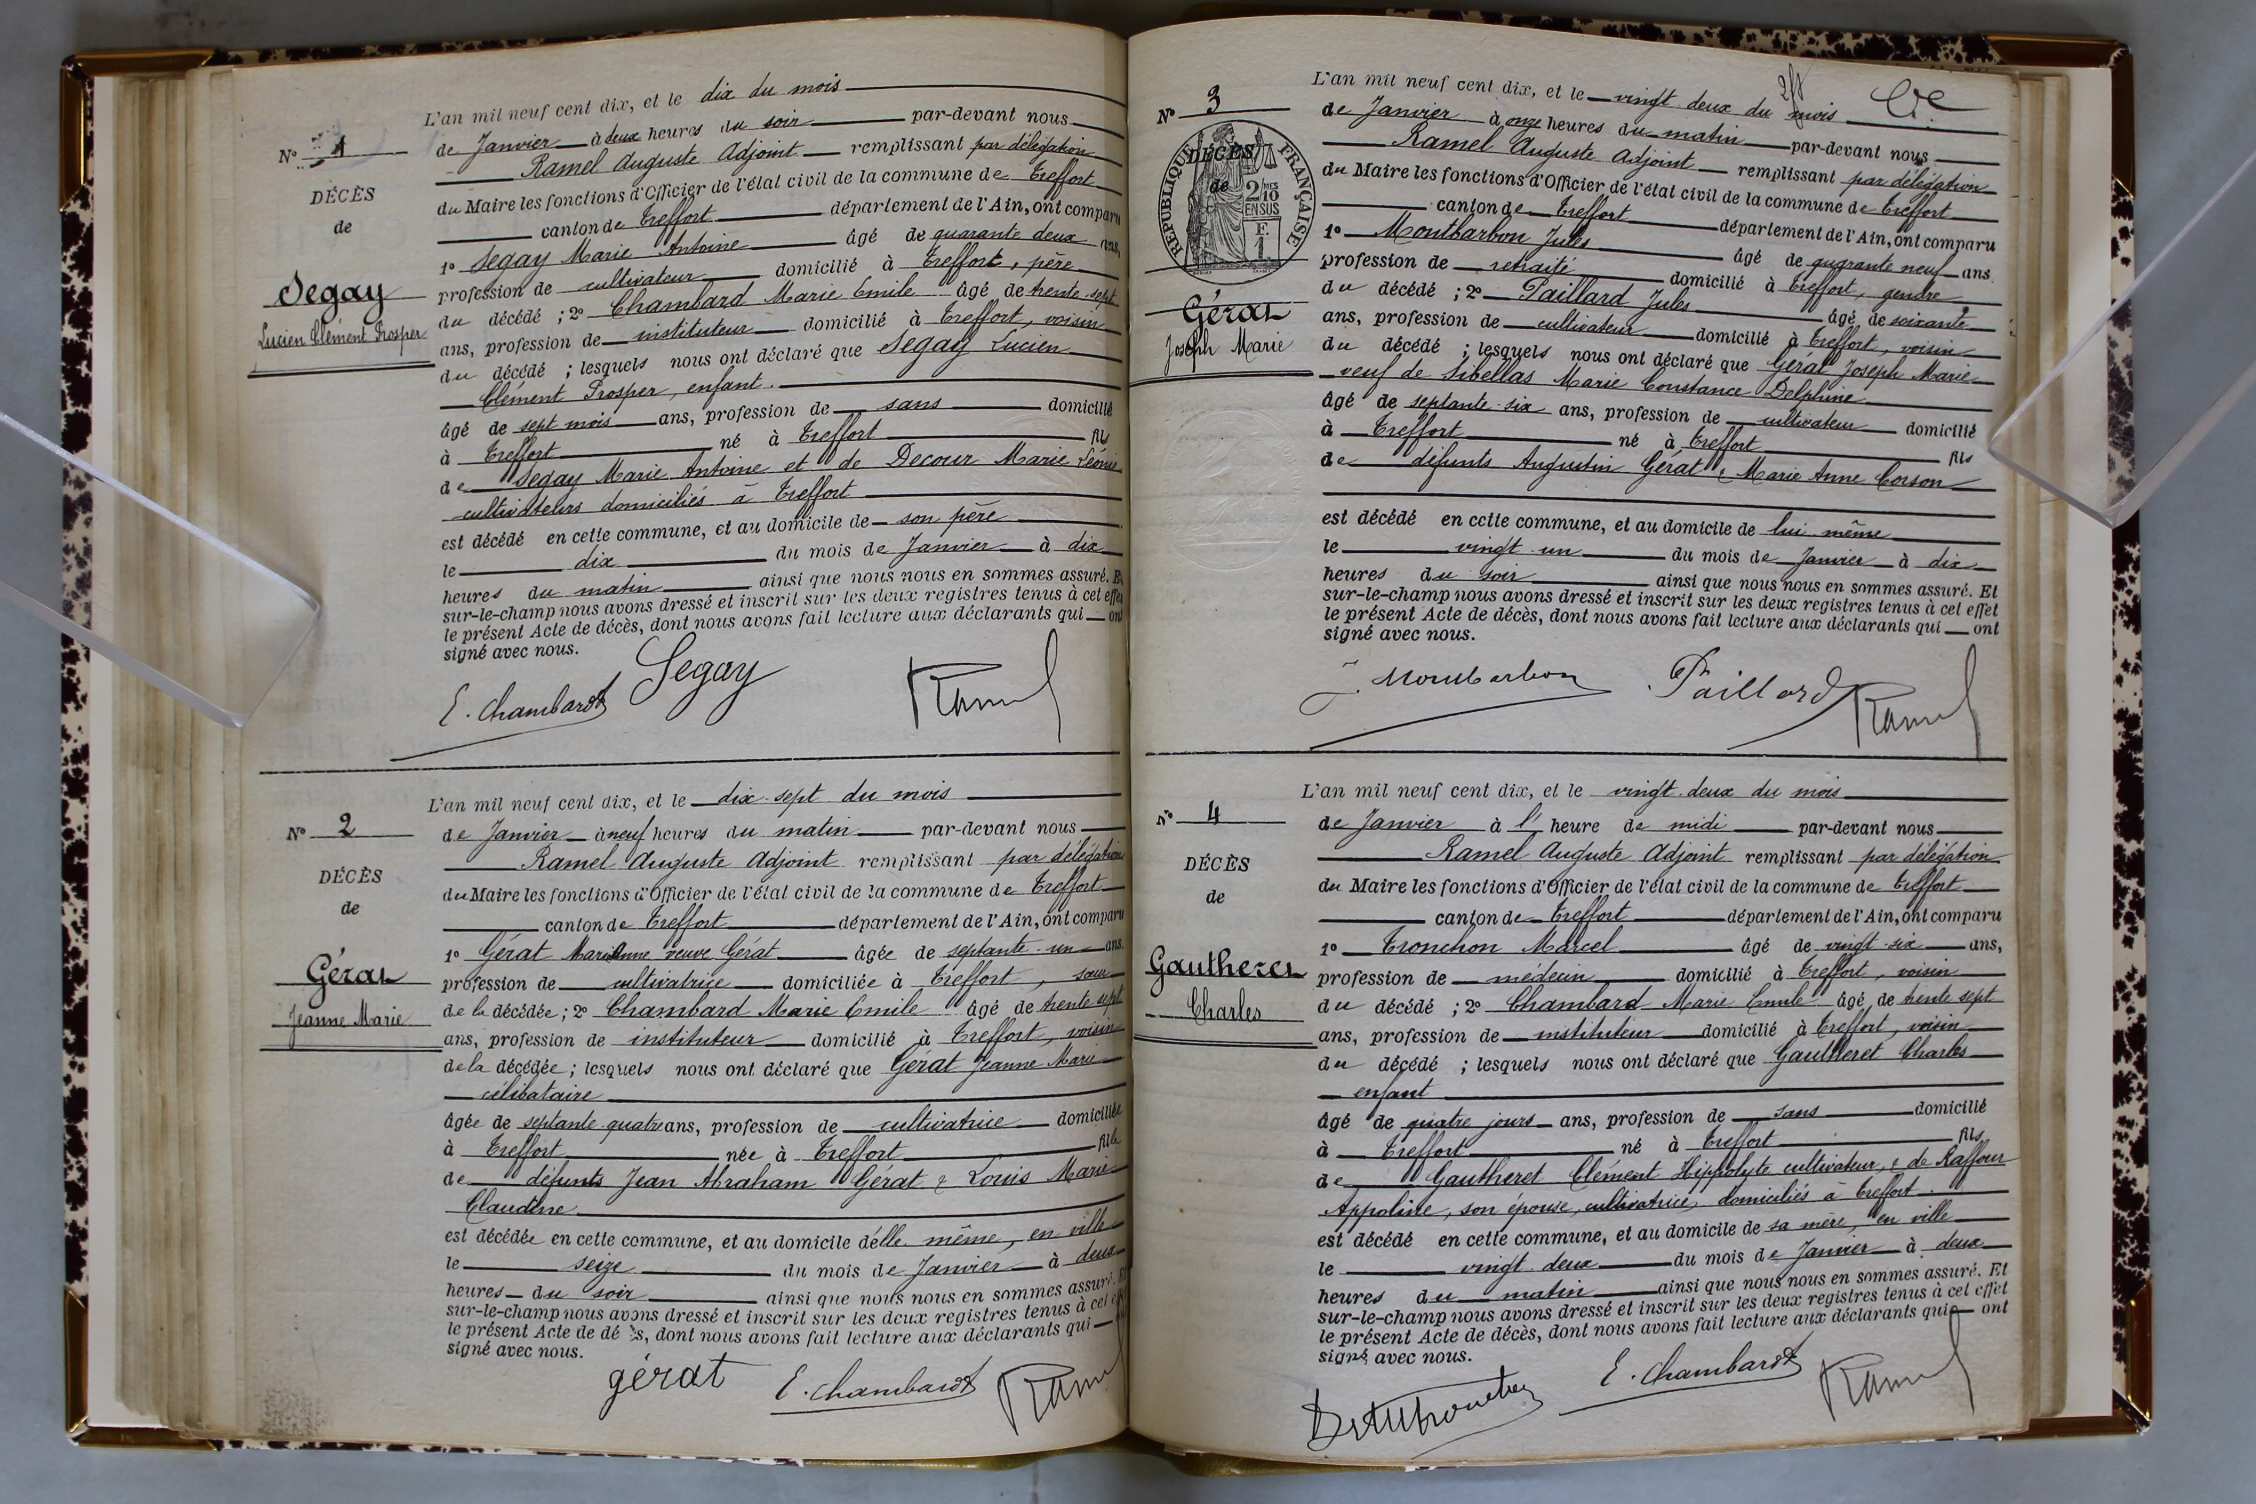 L'an mil neuf cent dix, et le dix du mois
N° 1
de Janvier à deux heures du soir par-devant nous
Ramel Auguste Adjoint remplissant par délégation
DÉCÈS
du Maire les fonctions d'Officier de l'état civil de la commune de Treffort
de
canton de Treffort département de l'Ain, ont comparu
1° Segay Marie Antoine âgé de quarante deux ans,
Segay
profession de cultivateur domicilié à Treffort, père
Lucien Clément Prosper
du décédé ; 2° Chambard Marie Emile âgé de trente sept
ans, profession de instituteur domicilié à Treffort, voisin
du décédé ; lesquels nous ont déclaré que Segay Lucien
Clément Prosper, enfant.
âgé de sept mois ans, profession de sans domicilié
à Treffort né à Treffort fils
de Segay Marie Antoine et de Decour Marie Léonie
cultivateurs domiciliés à Treffort
est décédé en cette commune, et au domicile de son père
le dix du mois de Janvier à dix
heures du matin ainsi que nous nous en sommes assuré. Et
sur-le-champ nous avons dressé et inscrit sur les deux registres tenus à cet effet
le présent Acte de décès, dont nous avons fait lecture aux déclarants qui ont
signé avec nous.
E. Chambard Segay Ramel
L'an mil neuf cent dix, et le dix-sept du mois
N° 2
de Janvier à neuf heures du matin par-devant nous
Ramel Auguste Adjoint remplissant par délégation
DÉCÈS
du Maire les fonctions d'Officier de l'état civil de la commune de Treffort
de
canton de Treffort département de l'Ain, ont comparu
1° Gérat Marianne veuve Gérat âgée de septante-un ans.
Gérat
profession de cultivatrice domiciliée à Treffort, sœur
Jeanne Marie
de la décédée ; 2° Chambard Marie Emile âgé de trente sept
ans, profession de instituteur domicilié à Treffort, voisin
de la décédée ; lesquels nous ont déclaré que Gérat Jeanne Marie
célibataire
âgée de septante quatre ans, profession de cultivatrice domiciliée
à Treffort née à Treffort fille
de défunts Jean Abraham Gérat & Louis Marie
Claudine
est décédée en cette commune, et au domicile d'elle même, en ville
le seize du mois de Janvier à deux
heures du soir ainsi que nous nous en sommes assuré. Et
sur-le-champ nous avons dressé et inscrit sur les deux registres tenus à cet effet
le présent Acte de décès, dont nous avons fait lecture aux déclarants qui
signé avec nous.
gérat E. Chambard Ramel
L'an mil neuf cent dix, et le vingt deux du mois
N° 3
de Janvier à onze heures du matin par-devant nous
Ramel Auguste Adjoint remplissant par délégation
RÉPUBLIQUE FRANÇAISE
DÉCÈS
de
2/10 EN SUS
F. 1
du Maire les fonctions d'Officier de l'état civil de la commune de Treffort
canton de Treffort département de l'Ain, ont comparu
1° Montbarbon Jules âgé de quarante neuf ans
profession de retraité domicilié à Treffort, gendre
Gérat
Joseph Marie
du décédé ; 2° Paillard Jules âgé de soixante
ans, profession de cultivateur domicilié à Treffort, voisin
du décédé ; lesquels nous ont déclaré que Gérat Joseph Marie
veuf de Sibellas Marie Constance Delphine
âgé de septante-six ans, profession de cultivateur domicilié
à Treffort né à Treffort fils
de défunts Augustin Gérat & Marie Anne Corson
est décédé en cette commune, et au domicile de lui même
le vingt-un du mois de Janvier à dix
heures du soir ainsi que nous nous en sommes assuré. Et
sur-le-champ nous avons dressé et inscrit sur les deux registres tenus à cet effet
le présent Acte de décès, dont nous avons fait lecture aux déclarants qui ont
signé avec nous.
J. Montbarbon Paillard Ramel
L'an mil neuf cent dix, et le vingt-deux du mois
N° 4
de Janvier à l' heure de midi par-devant nous
Ramel Auguste Adjoint remplissant par délégation
DÉCÈS
du Maire les fonctions d'Officier de l'état civil de la commune de Treffort
de
canton de Treffort département de l'Ain, ont comparu
1° Tronchon Marcel âgé de vingt-six ans,
Gautheret
profession de médecin domicilié à Treffort, voisin
Charles
du décédé ; 2° Chambard Marie Emile âgé de trente sept
ans, profession de instituteur domicilié à Treffort, voisin
du décédé ; lesquels nous ont déclaré que Gautheret Charles
enfant
âgé de quatre jours ans, profession de sans domicilié
à Treffort né à Treffort fils
de Gautheret Clément Hippolyte cultivateur, & de Raffour
Appoline, son épouse, cultivatrice, domiciliés à Treffort.
est décédé en cette commune, et au domicile de sa mère, en ville
le vingt-deux du mois de Janvier à deux
heures du matin ainsi que nous nous en sommes assuré. Et
sur-le-champ nous avons dressé et inscrit sur les deux registres tenus à cet effet
le présent Acte de décès, dont nous avons fait lecture aux déclarants qui ont
signé avec nous.
E. Chambard Ramel